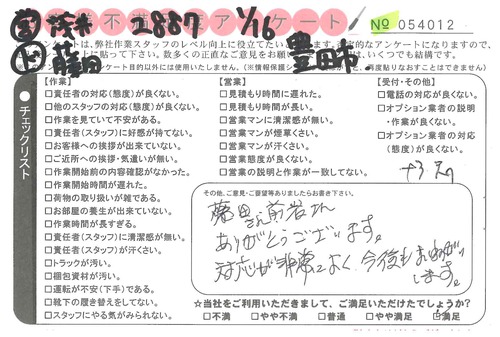 営 茂木 2887 1/16
不満足アンケート
№054012
豊田市
ト 藤田
アンケートは、弊社作業スタッフのレベル向上に役立てたい
数多くの正直なご意見をお願い
チェックリスト
【作業】
□責任者の対応(態度)が良くない。
□他のスタッフの対応(態度)が良くない。
□作業を見ていて不安がある。
□責任者(スタッフ)に好感が持てない。
□お客様への挨拶が出来ていない。
□ご近所への挨拶・気遣いが無い。
□作業開始前の内容確認がなかった。
□作業開始時間が遅れた。
□荷物の取り扱いが雑である。
□お部屋の養生が出来ていない。
□作業時間が長すぎる。
□責任者(スタッフ)に清潔感が無い。
□責任者(スタッフ)が汗くさい。
□トラックが汚い。
□梱包資材が汚い。
□運転が不安(下手)である。
□靴下の履き替えをしてない。
□スタッフにやる気がみられない。
【営業】
□見積もり時間に遅れた。
□見積もり時間が長い。
□営業マンに清潔感が無い。
□営業マンが煙草くさい。
□営業マンが汗くさい。
□営業態度が良くない。
□営業の説明と作業が一致してない。
【受付・その他】
□電話の対応が良くない。
□オプション業者の説明
・作業が良くない。
□オプション業者の対応
(態度)が良くない。
その他、ご意見・ご要望等ありましたらお書き下さい。
藤田さん前岩さん
ありがとうございます。
対応が非常によく 今後もおねがい
します。
☆当社をご利用いただきまして、ご満足いただけたでしょうか?
□不満 □やや不満 □普通 □やや満足 □満足